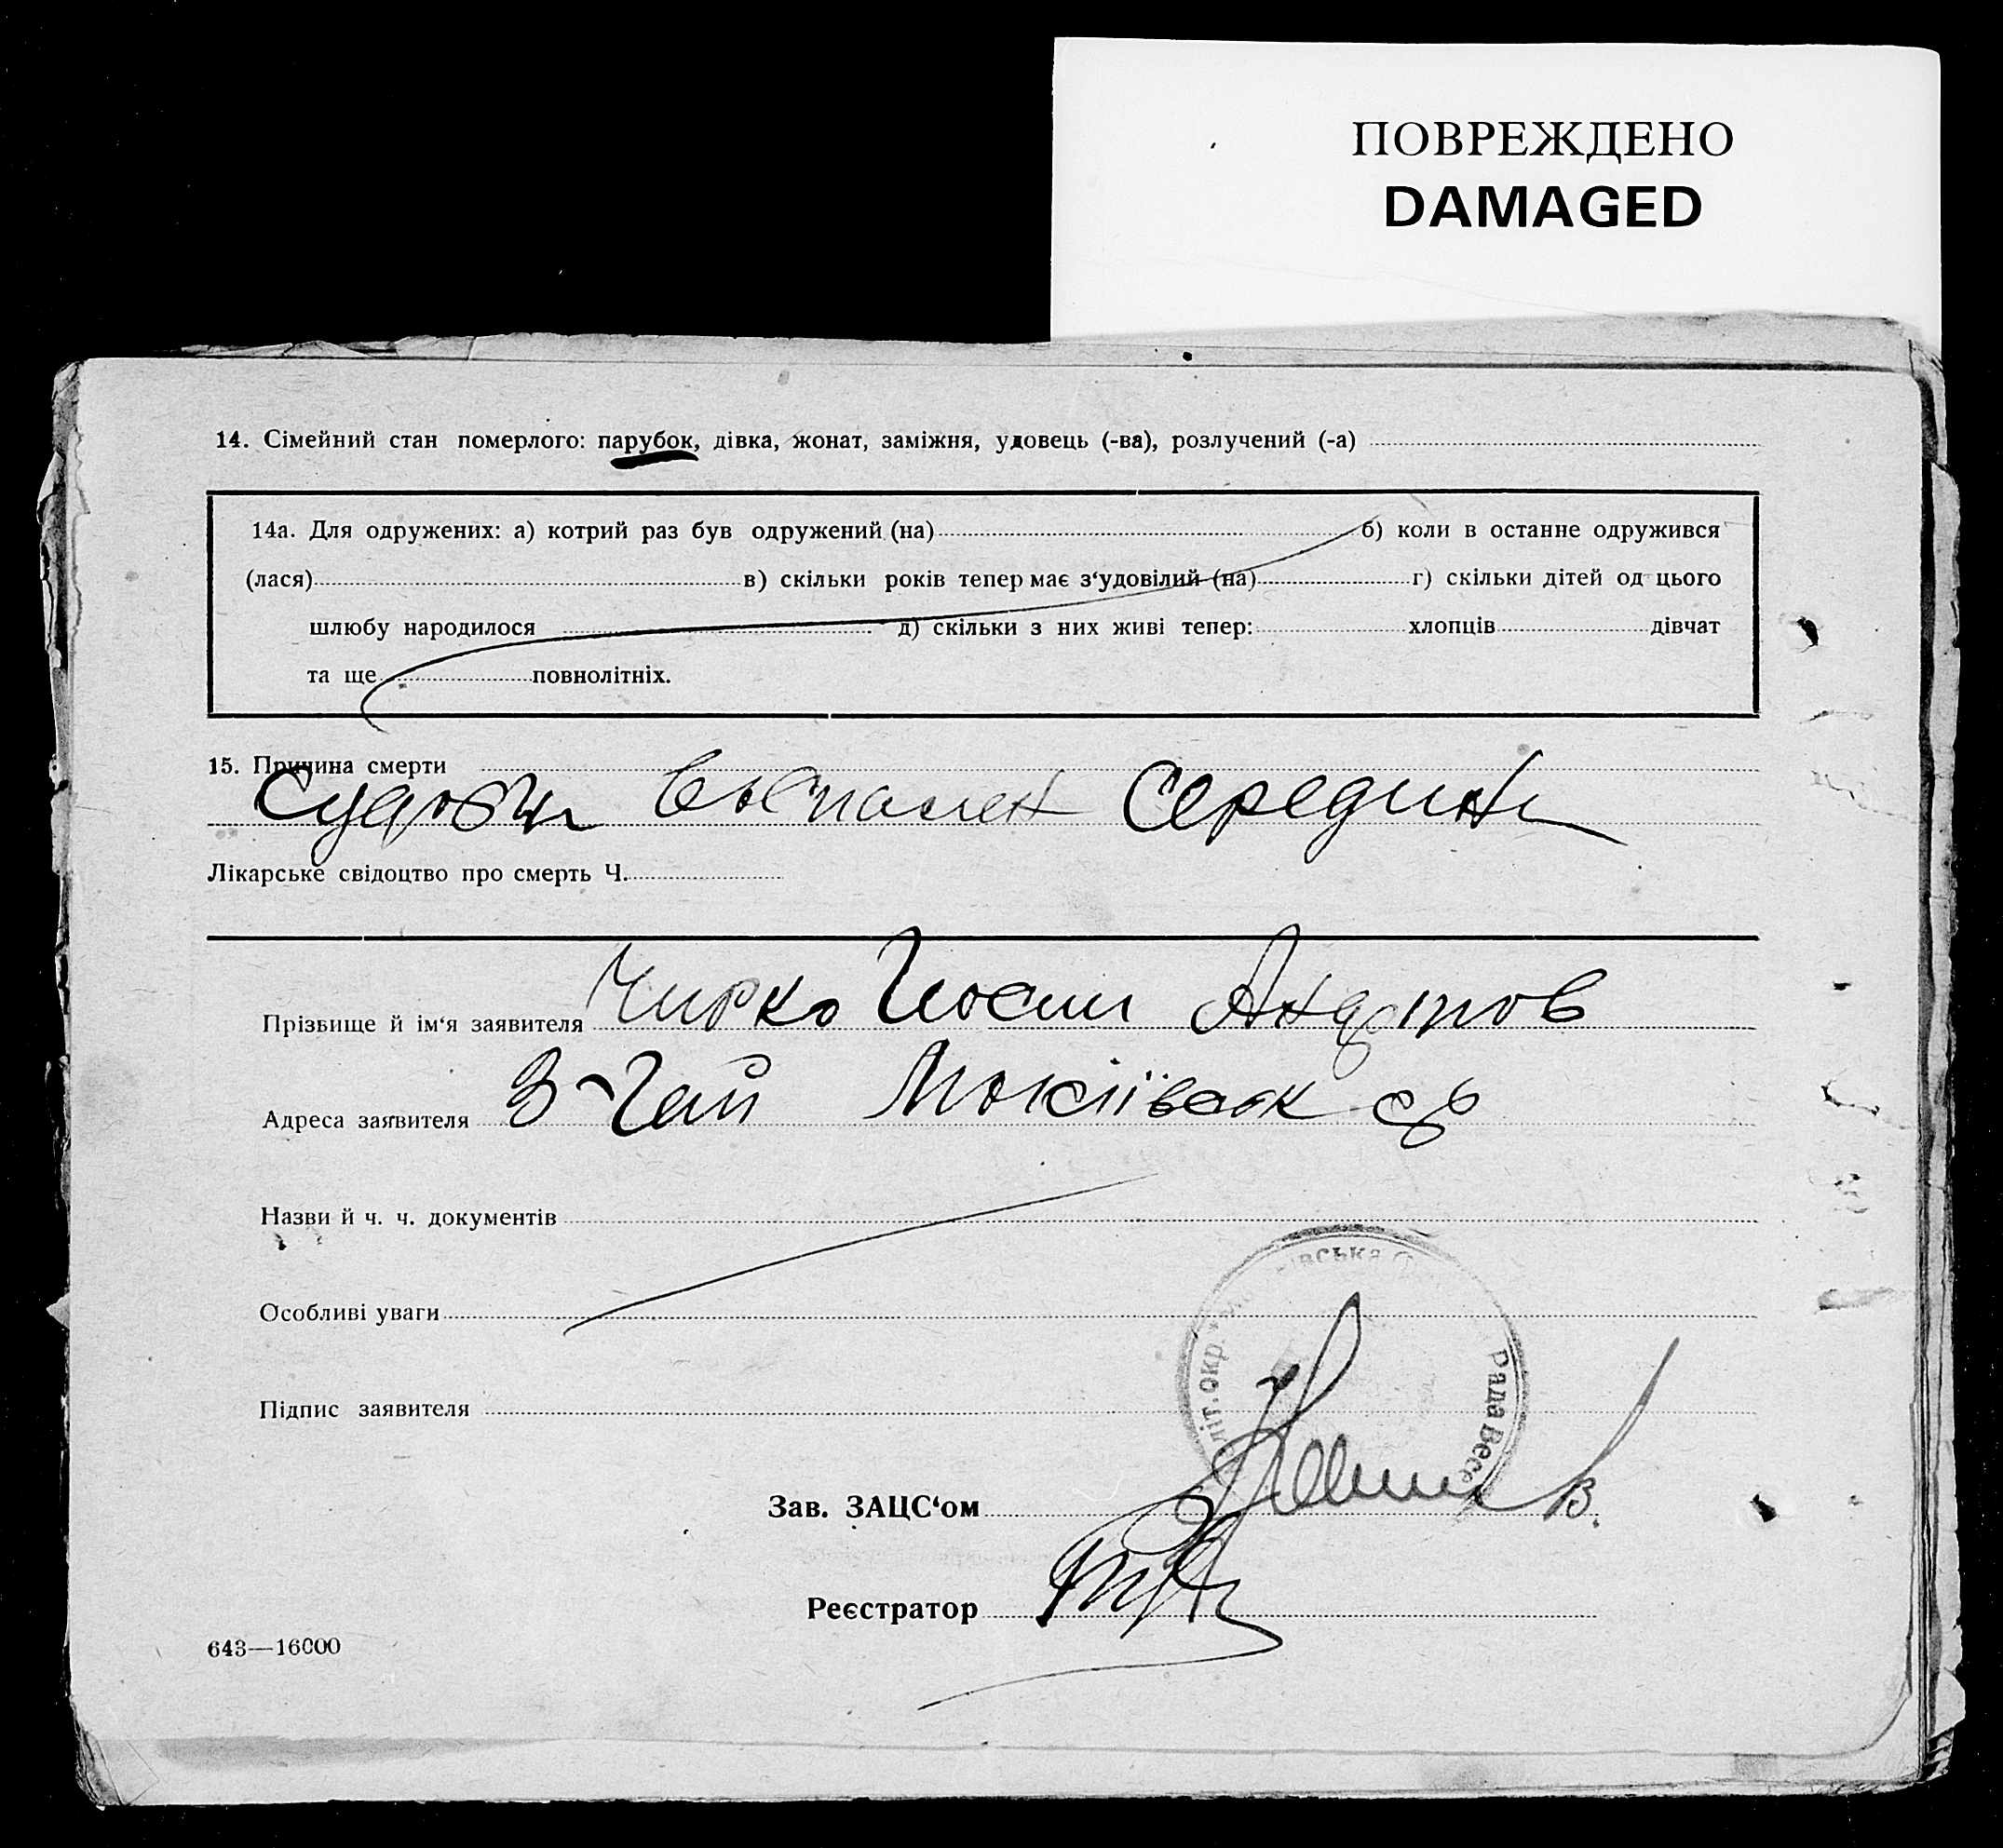 ПОВРЕЖДЕНО
DAMAGED
14. Сімейний стан померлого: парубок, дівка, жонат, заміжня, удовець (-ва), розлучений (-а)
14а. Для одружених: а) котрий раз був одружений (на) б) коли в останне одружився
(лася) в) скільки років тепер має з‘удовілий (на) г) скільки дітей од цього
шлюбу народилося д) скільки з них живі тепер: хлопців дівчат
та ще повнолітніх.
15. Причина смерти
середин
Лікарське свідоцтво про смерть Ч.
Прізвище й ім‘я заявителя Чирко
Адреса заявителя
Назви й ч. ч. документів
Особливі уваги
Підпис заявителя
Зав. ЗАЦС‘ом
Реєстратор
643—16000